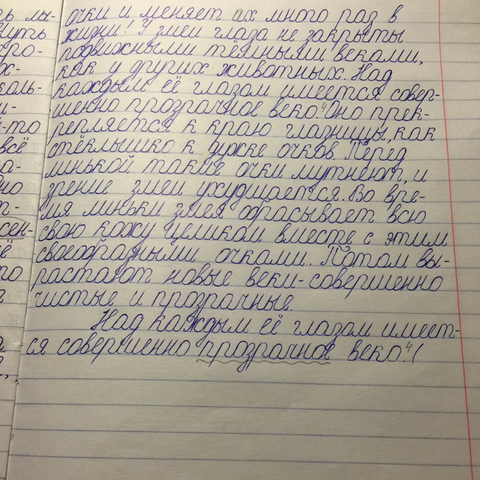 очки и меняет их много раз в
жизни. У змеи глаза не закрыты
подвижными тёмными веками,
как у других животных. Над
каждым её глазом имеется совер-
шенно прозрачное веко.⁴ Оно прек-
репляется к краю глазницы, как
стёклышко к дужке очков. Перед
линькой такие очки мутнеют, и
зрение змеи ухудшается. Во вре-
мя линьки змея сбрасывает всю
свою кожу целиком вместе с этим
своеобразными очками. Потом вы-
растают новые веки-совершенно
чистые и прозрачные.
Над каждым её глазом имеет-
ся совершенно прозрачное веко.⁴(